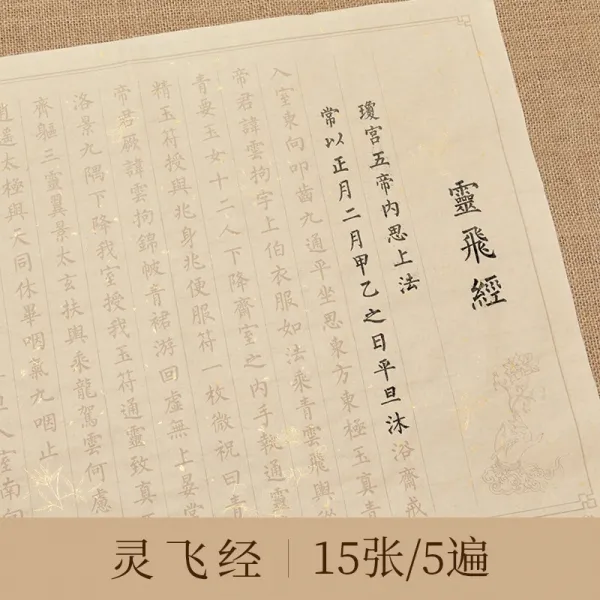 靈飛經
瓊宮五帝內思上法
常以正月二月甲乙之日平旦沐浴齊戒
入室東向叩齒九通平坐思東方東極玉真青
帝君諱雲拘字上伯衣服如法乘青雲飛輿從
青要玉女十二人下降齊室之內手執通靈
精玉符授與兆身兆便服符一枚微祝曰青
帝君厥諱雲拘錦帔青裙游回虛無上晏常
洛景九隅下降我室授我玉符通靈致真
齊軀三靈翼景太玄扶輿乘龍駕雲何慮
逍遥太極與天同休畢咽氣九咽止
入室南向
灵飞经 15张/5遍